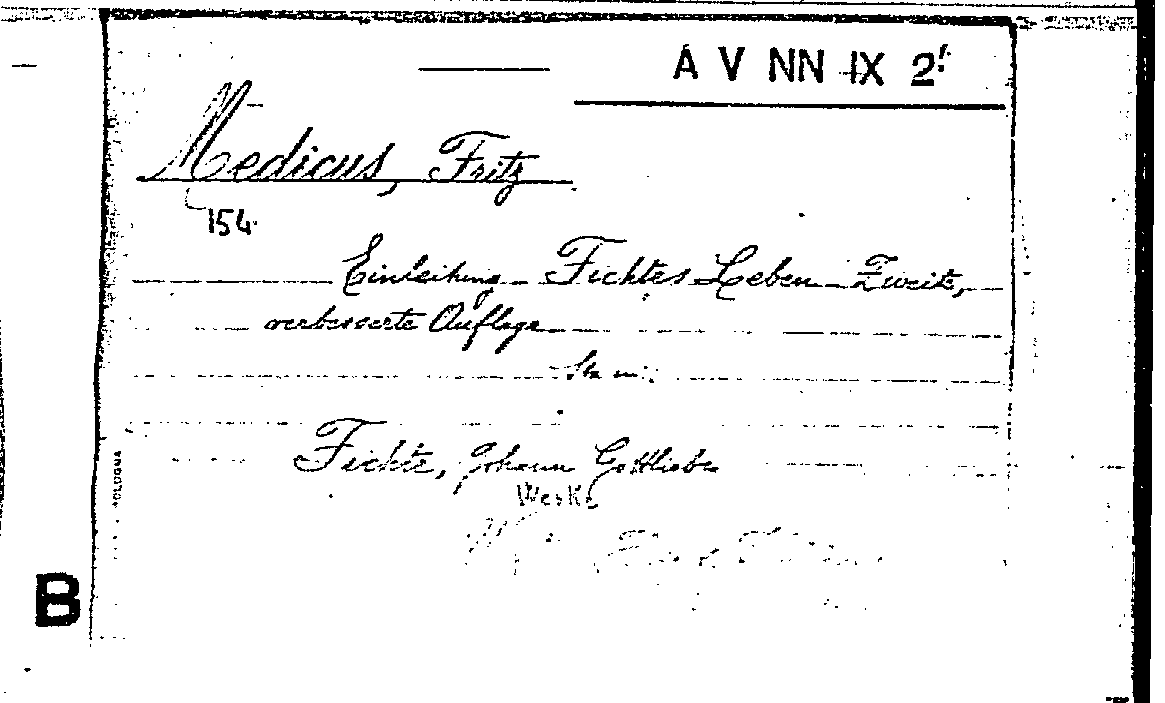 A V NN IX 2
Medicus, Fritz
154
Einleitung Fichtes Leben Zweite,
verbesserte Auflage
Fichte, Johann Gottlieb
Werke
BOLOGNA
B